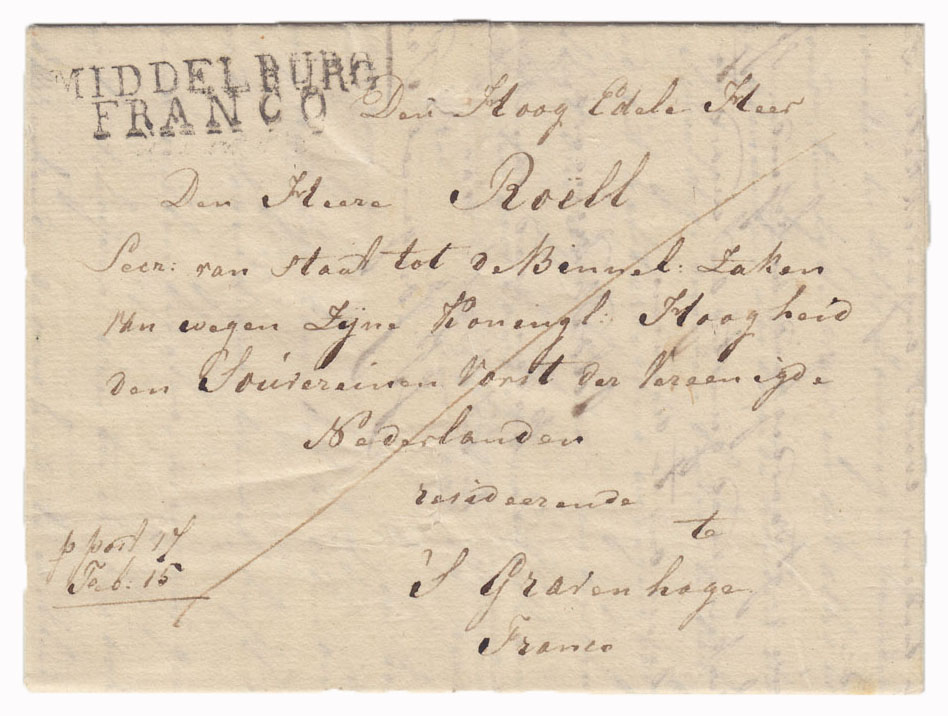 MIDDELBURG
FRANCO
Den Hoog Edele Heer
Den Heere Roëll
Secr: van staat tot de Binnel: Zaken
van wegen Zijne Konengl: Hoogheid
den Souvereinen Vorst der Vereenigde
Nederlanden
resideerende
te
'S Gravenhage
Franco
p post 17
Feb: 15